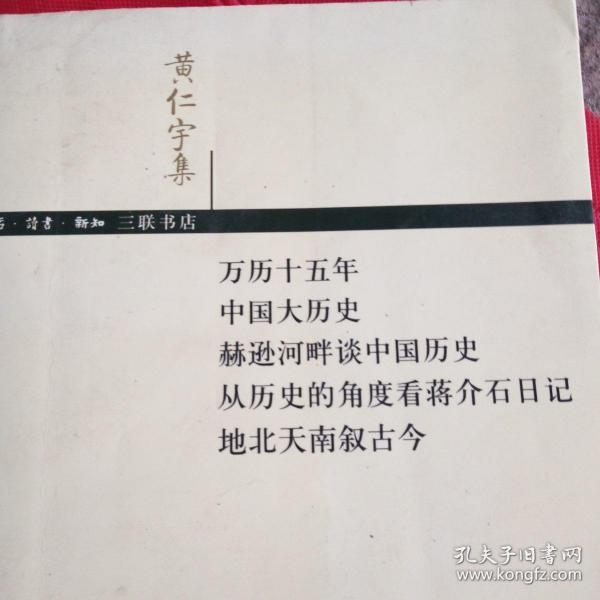 黄仁宇集
活·讀書·新知 三联书店
万历十五年
中国大历史
赫逊河畔谈中国历史
从历史的角度看蒋介石日记
地北天南叙古今
孔夫子旧书网
www.kongfz.com